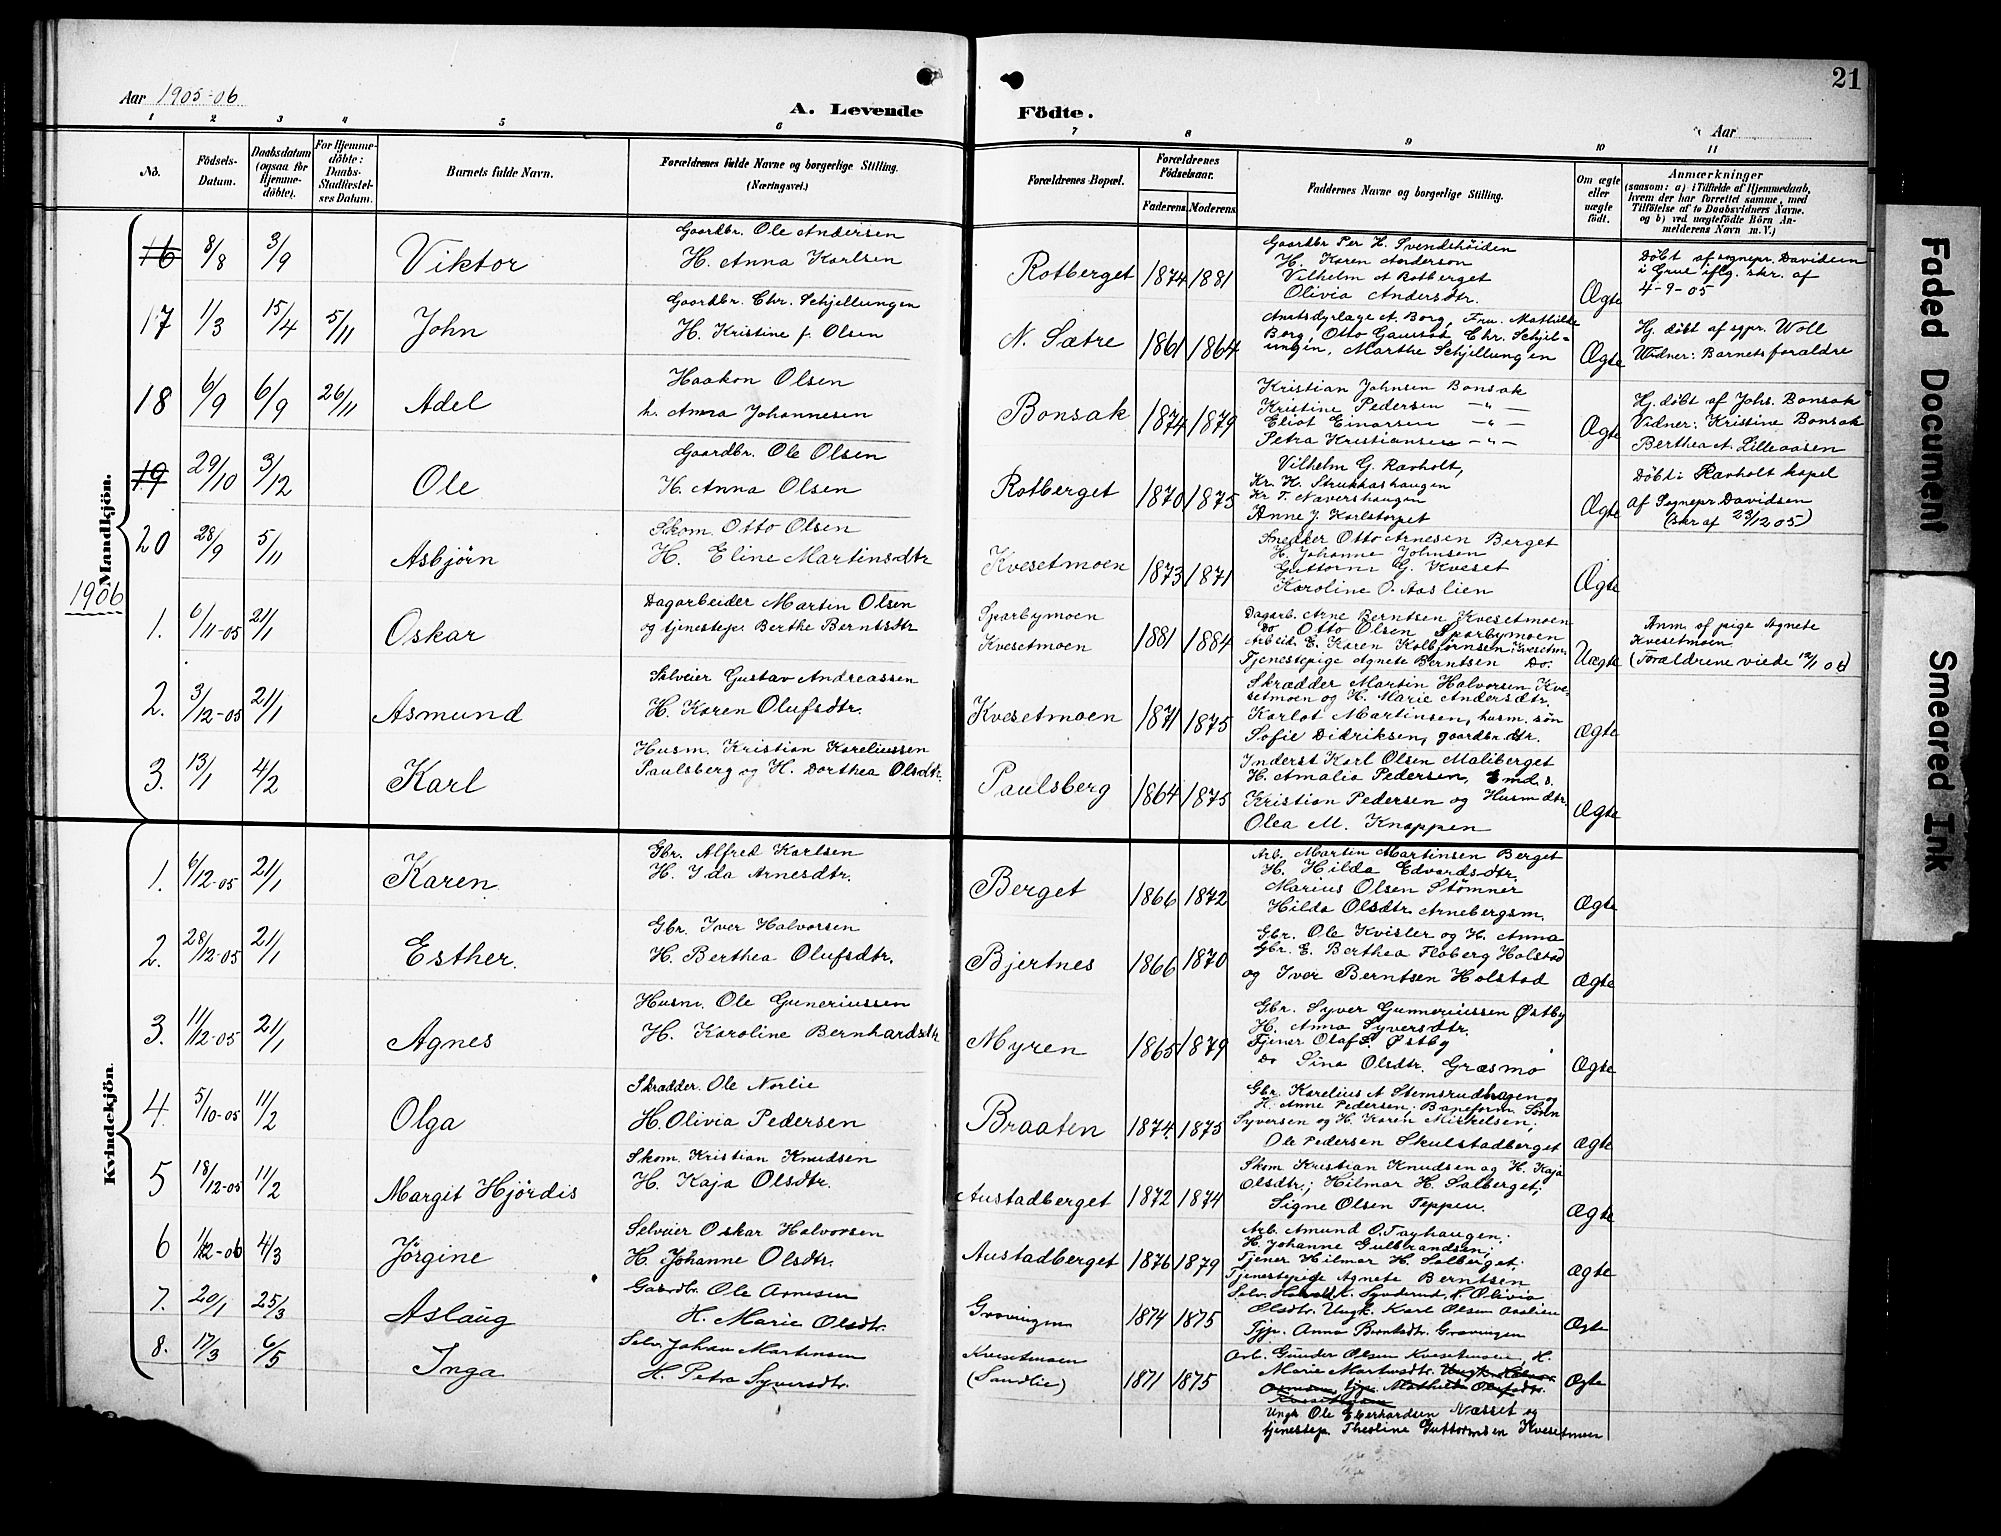 Aar 1905-06
A. Levende Födte.
21
Aar
1 2 3 4 5 6 7 8 9 10 11
No.
Födsels-Datum.
Daabsdatum (ogsaa for Hjemmedöbte).
For Hjemmedöbte: Daabs-Stadfæstelses Datum.
Barnets fulde Navn.
Forældrenes fulde Navne og borgerlige Stilling. (Næringsvei.)
Forældrenes Bopæl.
Forældrenes Födselsaar.
Faderens. Moderens.
Faddernes Navne og borgerlige Stilling.
Om ægte eller uægte födt.
Anmærkninger
(saasom: a) i Tilfælde af Hjemmedaab, hvem der har forrettet samme, med Tilföielse af to Daabsvidners Navne, og b) ved uægtefödte Börn Anmelderens Navn m. V.)
Mandkjön.
16 8/8 3/9 Viktor
Gaardbr. Ole Andersen
H. Anna Karlsen
Rotberget 1874 1881
Gaardbr Per H. Svendshöiden
H. Karen Anderson
Vilhelm A Rotberget
Olivia Andersdtr.
Ægte
Döbt af sognepr. Davidsen
i Grue iflg. skr. af
4-9-05
17 1/3 15/4 5/11 John
Gaardbr. Chr. Schjellungen
H. Kristine f. Olsen
N. Sætre 1861 1864
Amtsdyrlæge A. Borg, Fru Mathilde
Borg, Otto Gaustad, Chr. Schjel=
ungen, Marthe Schjellungen
Ægte
Hj. döbt af sgpr. Woll
Vidner: Barnets foraldre
18 6/9 6/9 26/11 Adel
Haakon Olsen
h. Anna Johannesen
Bonsak 1874 1879
Kristian Johnsen Bonsak
Kristine Pedersen — " —
Eliot Einarsen — " —
Petra Kristiansen — " —
Ægte
Hj. döbt af Johs. Bonsak
Vidner: Kristine Bonsak
Berthea A. Lilleaasen
19 29/10 3/12 Ole
Gaardbr. Ole Olsen
H. Anna Olsen
Rotberget 1870 1875
Vilhelm G. Ravholt,
Kr. H. Strukkashaugen
Kr T. Nævershaugen
Anne J. Karlstorpet
Ægte
Döbt i Ravholt kapel
af Sognepr Davidsen
(skr af 23/12 05)
20 28/9 5/11 Asbjörn
Skom. Otto Olsen
H. Eline Martinsdtr
Kvesetmoen 1873 1871
Snedker Otto Arnesen Berget
H. Johanne Johnsen
Guttorm G. Kveset
Karoline O. Aaslien
Ægte
1906
1. 6/11-05 21/1 Oskar
Dagarbeider Martin Olsen
og tjenestep. Berthe Berntsdtr
Sparbymoen
Kvesetmoen
1881 1884
Dagarb. Arne Berntsen Kvesetmoen
Do Otto Olsen Sparbymoen
Arbeid. E. Karen Kolbjörnsen Kvesetm.
Tjenestepige Agnete Berntsen Do.
Uægte
Anm. af pige Agnete
Kvesetmoen
(Forældrene viede 12/1 06)
2. 3/12-05 21/1 Asmund
Selveier Gustav Andreassen
H. Karen Olufsdtr.
Kvesetmoen 1871 1875
Skrædder Martin Halvorsen Kve-
setmoen og H. Marie Andersdtr.
Karlot Martinsen, husm. sön
Sofie Didriksen, gaardbr. dtr.
Ægte
3. 13/1 4/2 Karl
Husm. Kristian Kareliussen
Paulsberg og H. Dorthea Olsdtr.
Paulsberg 1864 1875
Inderst Karl Olsen Maliberget
H. Amalia Pedersen,
Kristian Pedersen og Husm dtr
Olea M. Knappen
Ægte
Kvindekjön.
1. 6/12-05 21/1 Karen
Gbr. Alfred Karlsen
H. Ida Arnesdtr.
Berget 1866 1872
Arb. Martin Martinsen Berget
H. Hilda Edvardsdtr.
Marius Olsen Stömner
Hilda Olsdtr. Arnebergsm.
Ægte
2. 28/12-05 21/1 Esther.
Gbr. Iver Halvorsen
H. Berthea Olufsdtr.
Bjertnes 1866 1870
Gbr. Ole Kvisler og H. Anna
Gbr. E. Berthea Floberg Holstad
og Iver Berntsen Holstad
Ægte
3. 11/12-05 21/1 Agnes
Husm. Ole Guneriussen
H. Karoline Bernhardsdtr
Myren 1865 1879
Gbr. Syver Gunneriussen Østby
H. Anna Syversdtr.
Tjener Olaf S. Østby
Do Sina Olsdtr. Græsmo
Ægte
4. 5/10-05 11/2 Olga
Skrædder. Ole Norlie
H. Olivia Pedersen
Braaten 1874. 1875
Gbr. Karelius A Stemsrudhagen og
H. Anne Pedersen. Baneform. Sörn
Syversen og H. Karen Mikkelsen;
Ole Pedersen Skulstadberget
Ægte
5 18/12-05 11/2 Margit Hjördis
Skom. Kristian Knudsen
H. Kaja Olsdtr.
Austadberget 1872 1874
Skom Kristian Knudsen og H. Kaja
Olsdtr.; Hilmar H. Salberget;
Signe Olsen Teppen.
Ægte
6 4/3 Jörgine
Selveier Oskar Halvorsen
H. Johanne Olsdtr.
Austadberget 1876 1879
Arb. Amund O. Tayhaugen.
H. Johanne Gulbrandsen;
Tjener Hilmar H. Salberget;
Tjenestepede Agnete Berntsen
Ægte
7. 20/1 25/3 Aslaug
Gaardbr. Ole Arnesen
H. Marie Olsdtr.
Gravingen 1874 1875
Selv. H. Olivia
Olsdtr. Ungk. Karl Olsen Aaslien
Tjp. Anna Berntsdtr. Gravingen
Ægte
8. 17/3 6/5 Inga
Selv. Johan Martinsen
H. Petra Syversdtr.
Kvesetmoen
(Sandlie)
1871 1875
Arb. Gunder Olsen Kvesetmoen, H.
Marie Martinsdtr.
tjp. Mathilde Olufsdtr.
Ungk Ole Eberhardsen Næsset og
tjenestep. Theoline Guttormsen Kvesetmoen
Ægte
Faded Document
Smeared Ink